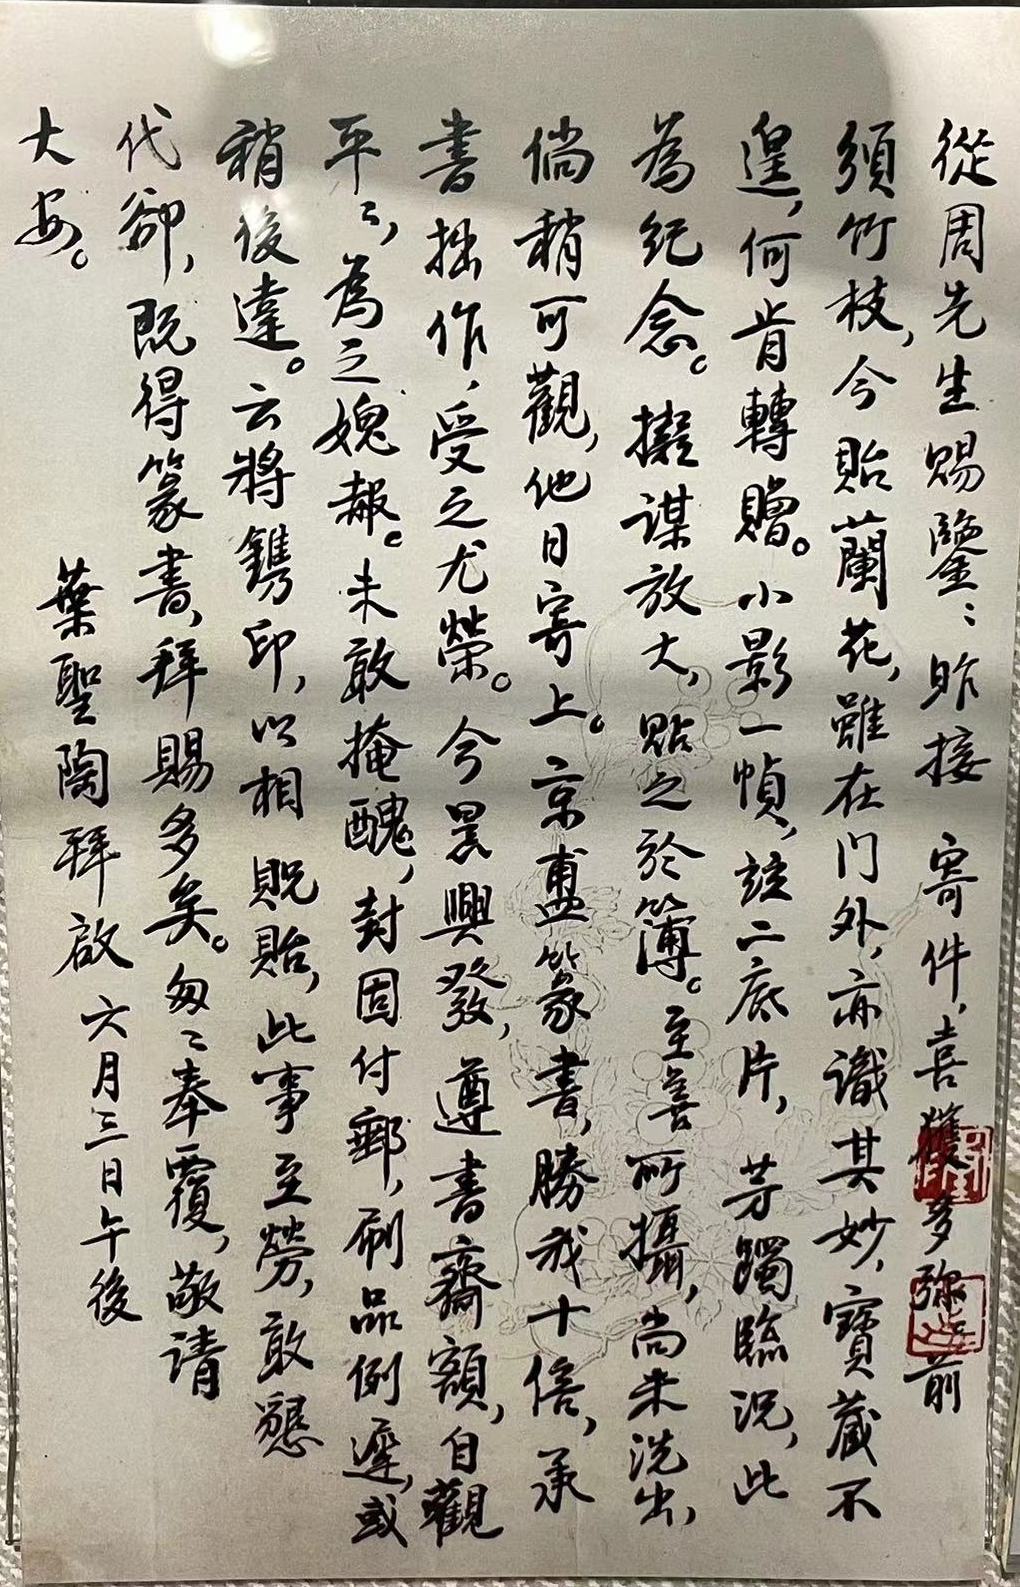 從周先生賜鑒：昨接　寄件，喜獲多彌前
須竹枝，今貽蘭花，雖在门外，亦識其妙，寶藏不
遑，何肯轉贈。小影一幀，註二底片，芳躅臨況，此
為紀念。擬謀放大，貼之於簿。至善所攝，尚未洗出，
倘稍可觀，他日寄上。京盙篆書，勝我十倍，承
書拙作，受之尤榮。今晨興發，遵書齋額，自觀
平〻，為之媿赧。未敢掩醜，封固付郵，刷品例遲，或
稍後達。云將鐫印，以相　貺貽，此事至勞，敢懇
代卻，既得篆書，拜賜多矣。匆〻奉覆，敬请
大安。
葉聖陶拜啟　六月三日午後